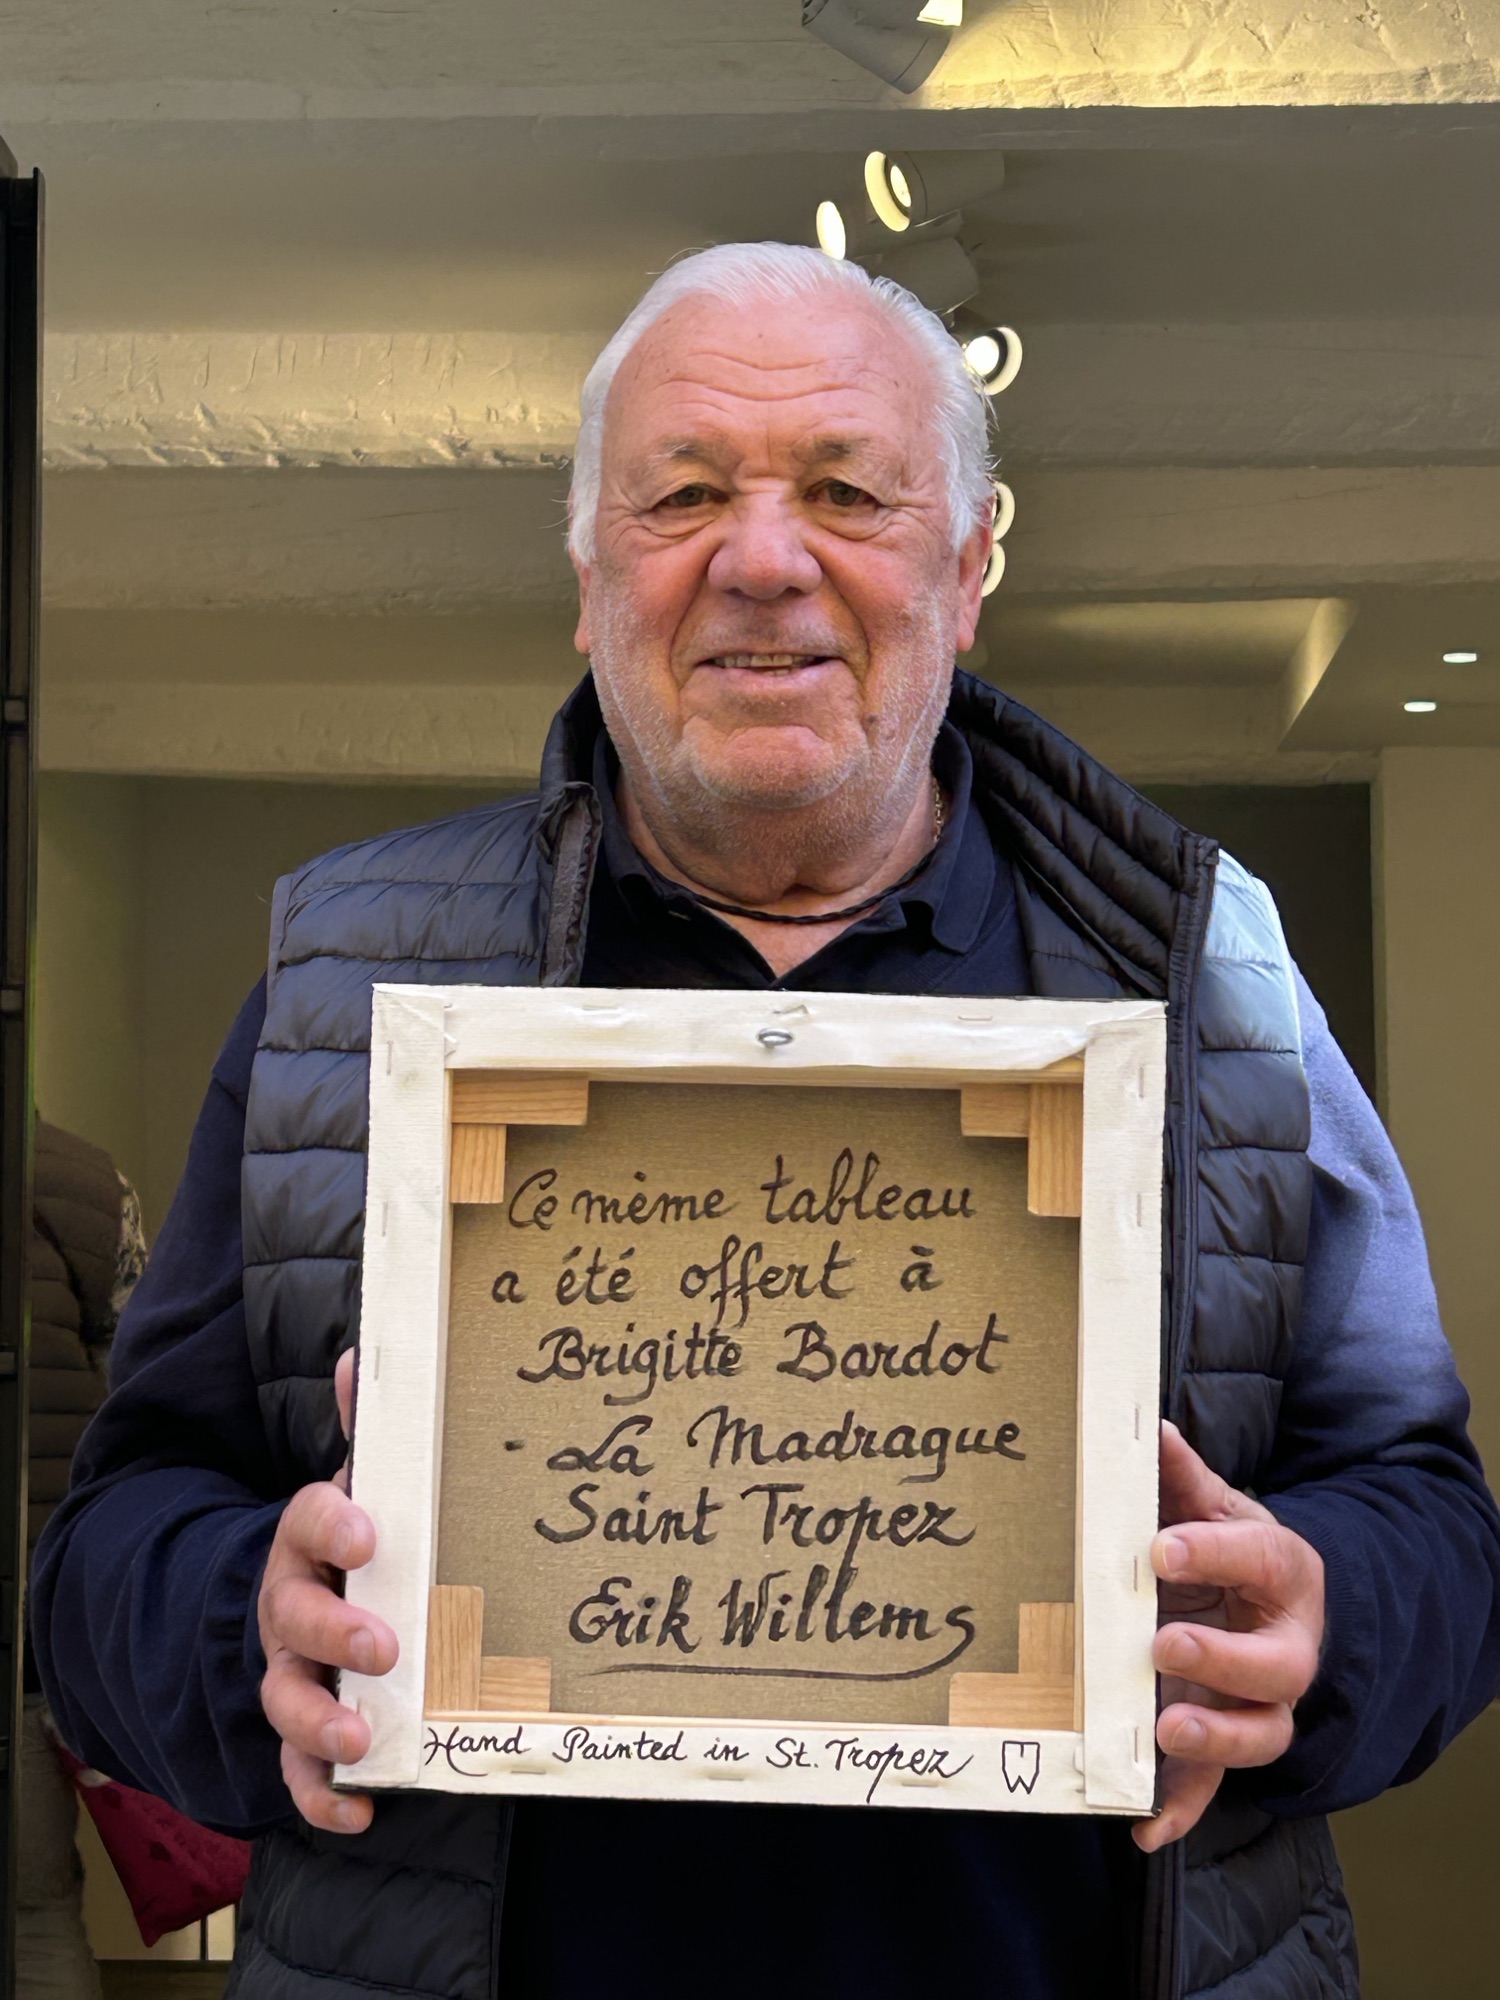 Ce mème tableau
a été offert à
Brigitte Bardot
- La Madrague
Saint Tropez
Erik Willems
Hand Painted in St. Tropez